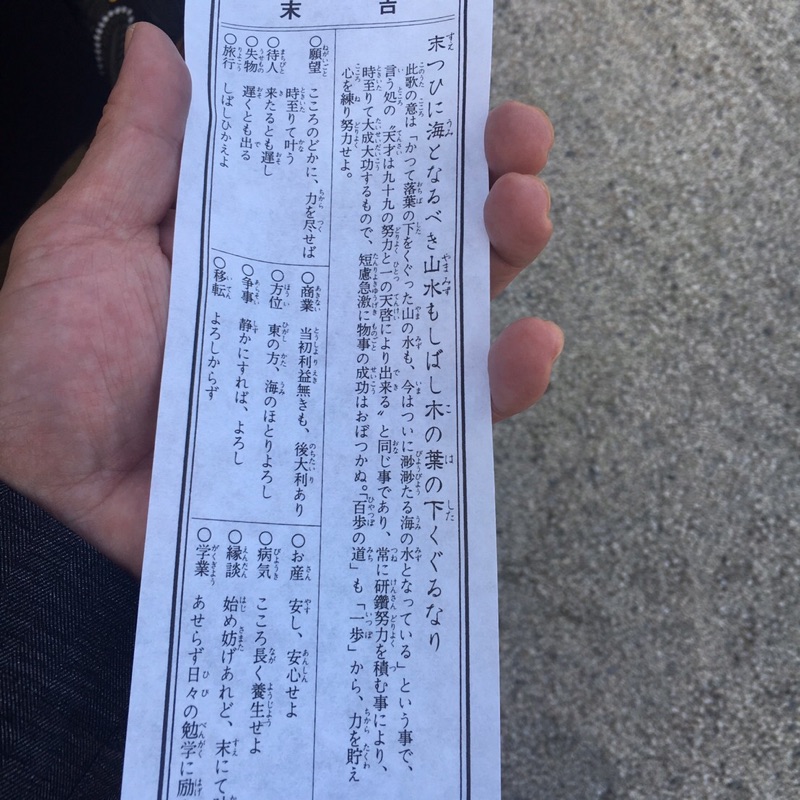 末吉
末つひに海となるべき山水もしばし木の葉の下くぐるなり
此歌の意は「かつて落葉の下をくぐった山の水も、今はついに渺渺たる海の水となっている」という事で、
言う処の〝天才は九十九の努力と一の天啓により出来る〟と同じ事であり、常に研鑽努力を積む事により、
時至りて大成大功するもので、短慮急激に物事の成功はおぼつかぬ。「百歩の道」も「一歩」から、力を貯え
心を練り努力せよ。
○願望 こころのどかに、力を尽せば
時至りて叶う
○待人 来たるとも遅し
○失物 遅くとも出る
○旅行 しばしひかえよ
○商業 当初利益無きも、後大利あり
○方位 東の方、海のほとりよろし
○争事 静かにすれば、よろし
○移転 よろしからず
○お産 安し、安心せよ
○病気 こころ長く養生せよ
○縁談 始め妨げあれど、末にて
○学業 あせらず日々の勉学に励